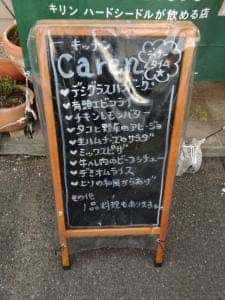 キリン ハードシードルが飲める店
キッチン
Caren
デミグラスハンバーグ
有頭エビフライ
チキンとモンバター
タコと野菜のアヒージョ
生ハムチーズサラダ
ミックスピザ
牛ホホ肉のビーフシチュー
デミオムライス
とりの和風からあげ
その他
1品料理もあります。